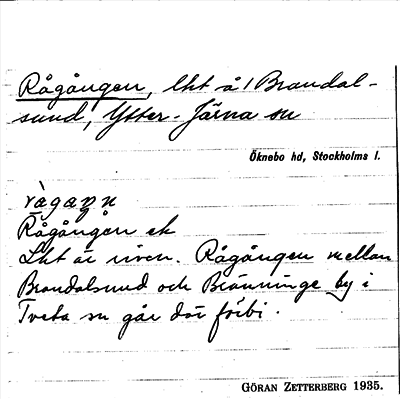 Rågången, lht å / Brandal-
sund, Ytter-Järna sn
Öknebo hd, Stockholms l.
Rågången ek
Lht är riven. Rågången mellan
Brandalsund och Bränninge by i
Tveta sn går där förbi.
GÖRAN ZETTERBERG 1935.